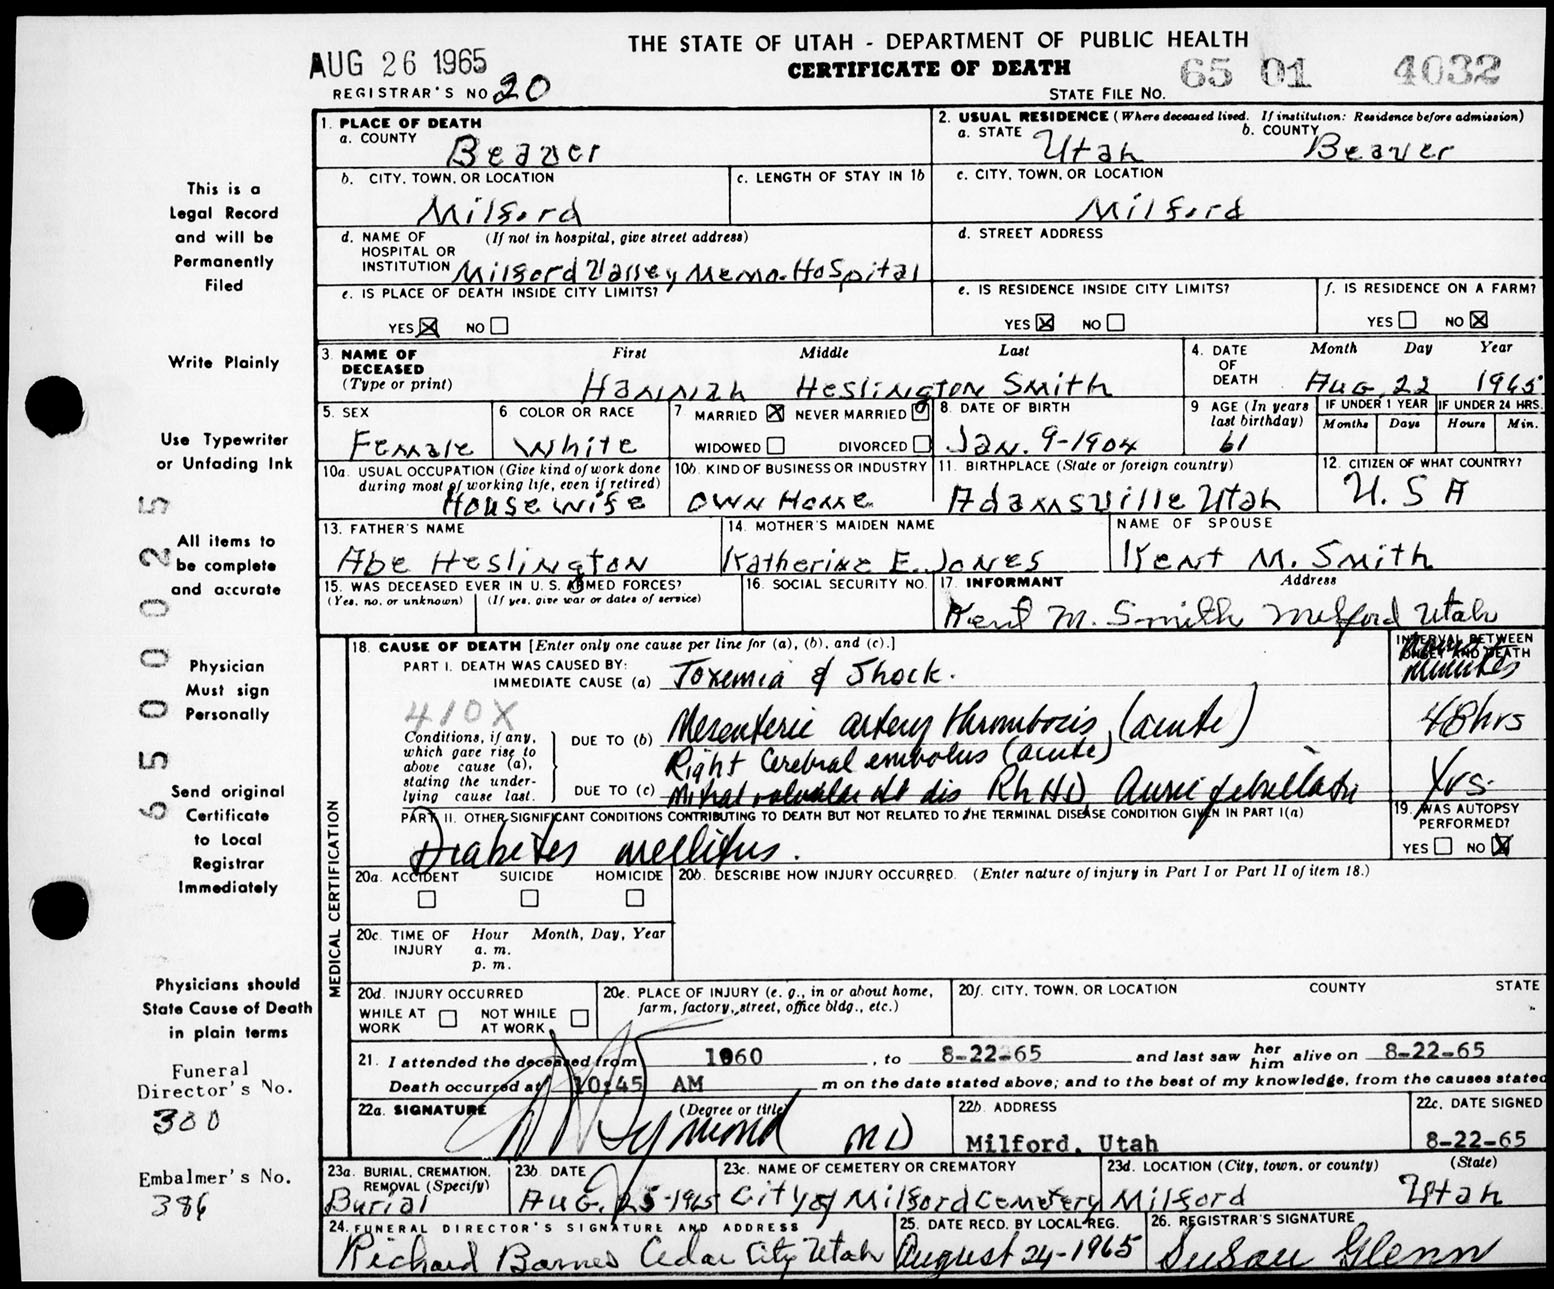 THE STATE OF UTAH - DEPARTMENT OF PUBLIC HEALTH
AUG 26 1965
CERTIFICATE OF DEATH
65 01 4032
REGISTRAR'S NO 20
STATE FILE NO.
1. PLACE OF DEATH
a. COUNTY Beaver
2. USUAL RESIDENCE (Where deceased lived. If institution: Residence before admission)
a. STATE Utah b. COUNTY Beaver
b. CITY, TOWN, OR LOCATION Milford
c. LENGTH OF STAY IN 1b
c. CITY, TOWN, OR LOCATION Milford
d. NAME OF HOSPITAL OR INSTITUTION (If not in hospital, give street address)
Milford Valley Memo. Hospital
d. STREET ADDRESS
e. IS PLACE OF DEATH INSIDE CITY LIMITS?
YES ☒ NO ☐
e. IS RESIDENCE INSIDE CITY LIMITS?
YES ☒ NO ☐
f. IS RESIDENCE ON A FARM?
YES ☐ NO ☒
3. NAME OF DECEASED (Type or print)
First Middle Last
Hannah Heslington Smith
4. DATE OF DEATH
Month Day Year
Aug. 22 1965
5. SEX Female
6 COLOR OR RACE White
7 MARRIED ☒ NEVER MARRIED ☐
WIDOWED ☐ DIVORCED ☐
8. DATE OF BIRTH Jan. 9-1904
9 AGE (In years last birthday) 61
IF UNDER 1 YEAR IF UNDER 24 HRS.
Months Days Hours Min.
10a. USUAL OCCUPATION (Give kind of work done during most of working life, even if retired)
Housewife
10b. KIND OF BUSINESS OR INDUSTRY
Own Home
11. BIRTHPLACE (State or foreign country)
Adamsville Utah
12. CITIZEN OF WHAT COUNTRY?
U.S A
13. FATHER'S NAME
Abe Heslington
14. MOTHER'S MAIDEN NAME
Katherine E. Jones
NAME OF SPOUSE
Kent M. Smith
15. WAS DECEASED EVER IN U. S. ARMED FORCES?
(Yes, no, or unknown) (If yes, give war or dates of service)
16. SOCIAL SECURITY NO.
17. INFORMANT Address
Kent M. Smith Milford Utah
MEDICAL CERTIFICATION
18. CAUSE OF DEATH [Enter only one cause per line for (a), (b), and (c).]
INTERVAL BETWEEN ONSET AND DEATH
PART I. DEATH WAS CAUSED BY:
IMMEDIATE CAUSE (a) Toxemia & Shock.
minutes
410X
Conditions, if any, which gave rise to above cause (a), stating the underlying cause last.
DUE TO (b) Mesenteric artery thrombosis (acute)
48 hrs
Right Cerebral embolus (acute)
DUE TO (c) Mitral valvular Ht dis Rh HD,
Yrs.
PART II. OTHER SIGNIFICANT CONDITIONS CONTRIBUTING TO DEATH BUT NOT RELATED TO THE TERMINAL DISEASE CONDITION GIVEN IN PART I(a)
Diabetes mellitus.
19. WAS AUTOPSY PERFORMED?
YES ☐ NO ☒
20a. ACCIDENT SUICIDE HOMICIDE
☐ ☐ ☐
20b. DESCRIBE HOW INJURY OCCURRED. (Enter nature of injury in Part I or Part II of item 18.)
20c. TIME OF INJURY Hour Month, Day, Year
a. m.
p. m.
20d. INJURY OCCURRED
WHILE AT WORK ☐ NOT WHILE AT WORK ☐
20e. PLACE OF INJURY (e. g., in or about home, farm, factory, street, office bldg., etc.)
20f. CITY, TOWN, OR LOCATION COUNTY STATE
21. I attended the deceased from 1960, to 8-22-65 and last saw her him alive on 8-22-65
Death occurred at 10:45 AM m on the date stated above; and to the best of my knowledge, from the causes stated
22a. SIGNATURE (Degree or title)
MD
22b. ADDRESS
Milford, Utah
22c. DATE SIGNED
8-22-65
23a. BURIAL, CREMATION, REMOVAL (Specify)
Burial
23b. DATE
Aug. 25-1965
23c. NAME OF CEMETERY OR CREMATORY
City of Milford Cemetery
23d. LOCATION (City, town, or county) (State)
Milford Utah
24. FUNERAL DIRECTOR'S SIGNATURE AND ADDRESS
Richard Barnes Cedar City Utah
25. DATE RECD. BY LOCAL REG.
August 24-1965
26. REGISTRAR'S SIGNATURE
Susan Glenn
This is a
Legal Record
and will be
Permanently
Filed
Write Plainly
Use Typewriter
or Unfading Ink
All items to
be complete
and accurate
Physician
Must sign
Personally
Send original
Certificate
to Local
Registrar
Immediately
Physicians should
State Cause of Death
in plain terms
Funeral
Director's No.
300
Embalmer's No.
386
6 5 0 0 0 2 5